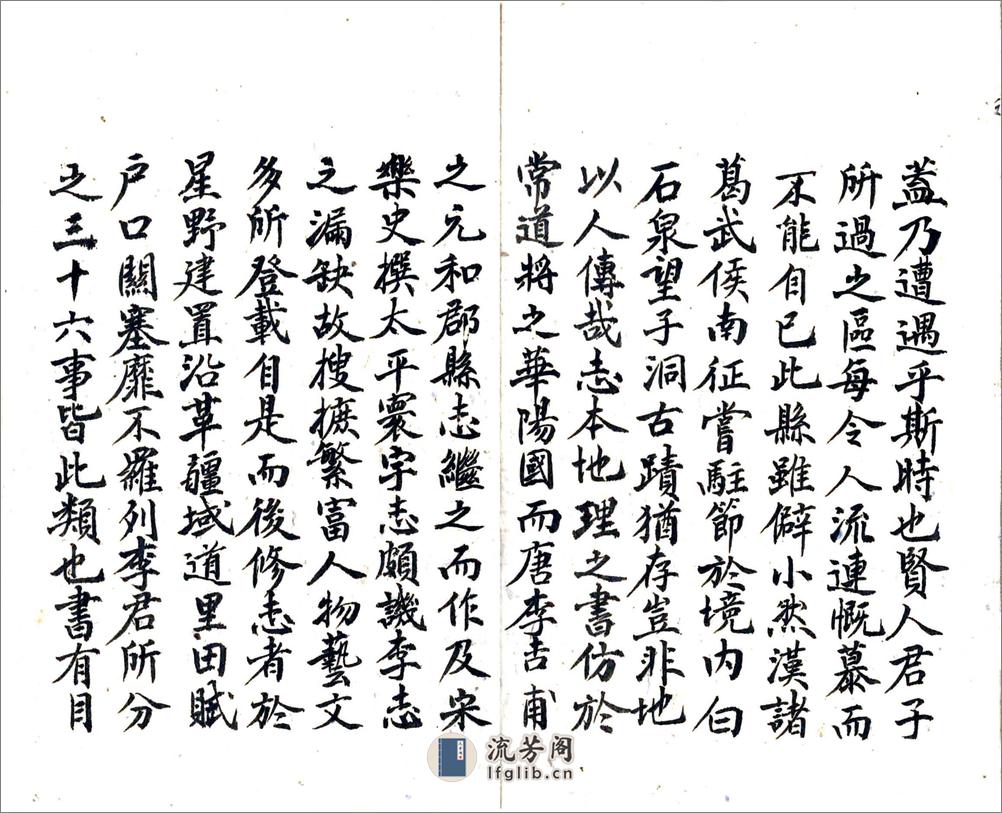 蓋乃遭遇乎斯時也賢人君子
所過之區每令人流連慨慕而
不能自已此縣雖僻小然漢諸
葛武侯南征嘗駐節於境內白
石泉望子洞古蹟猶存豈非地
以人傳哉志本地理之書仿於
常道將之華陽國而唐李吉甫
之元和郡縣志繼之而作及宋
樂史撰太平寰宇志頗譏李志
之漏缺故搜摭繁富人物藝文
多所登載自是而後修志者於
星野建置沿革疆域道里田賦
戶口關塞靡不羅列李君所分
之三十六事皆此類也書有目
流芳阁
lfglib.cn